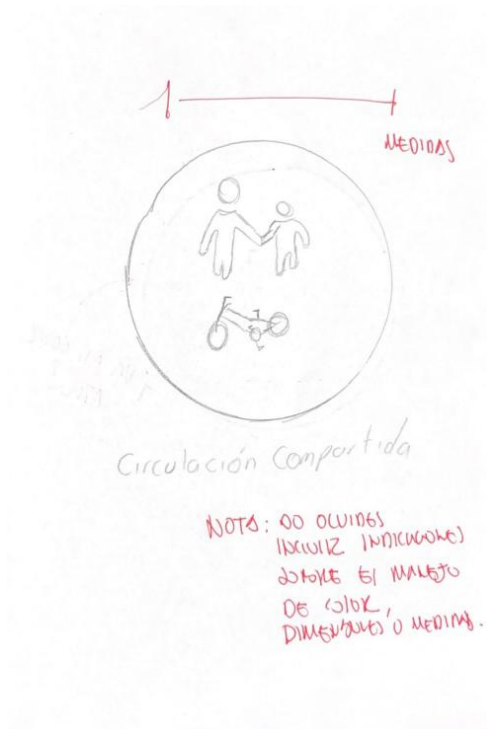 MEDIDAS
Circulación Compartida
NOTA: NO OLVIDES
INCLUIR INDICACIONES
SOBRE El MANEJO
DE COlOR,
DIMENSIONES O MEDIDAS.